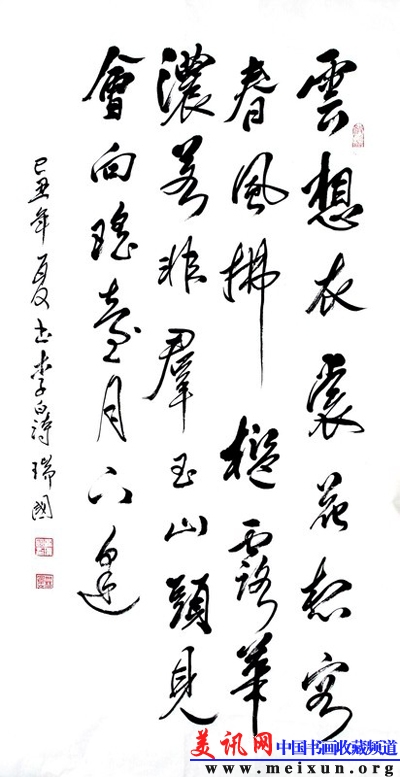 雲想衣裳花想容
春風拂檻露華
濃若非羣玉山頭見
會向瑤臺月下逢
己丑年夏書李白詩瑞國
美讯网 中国书画收藏频道
www.meixun.org